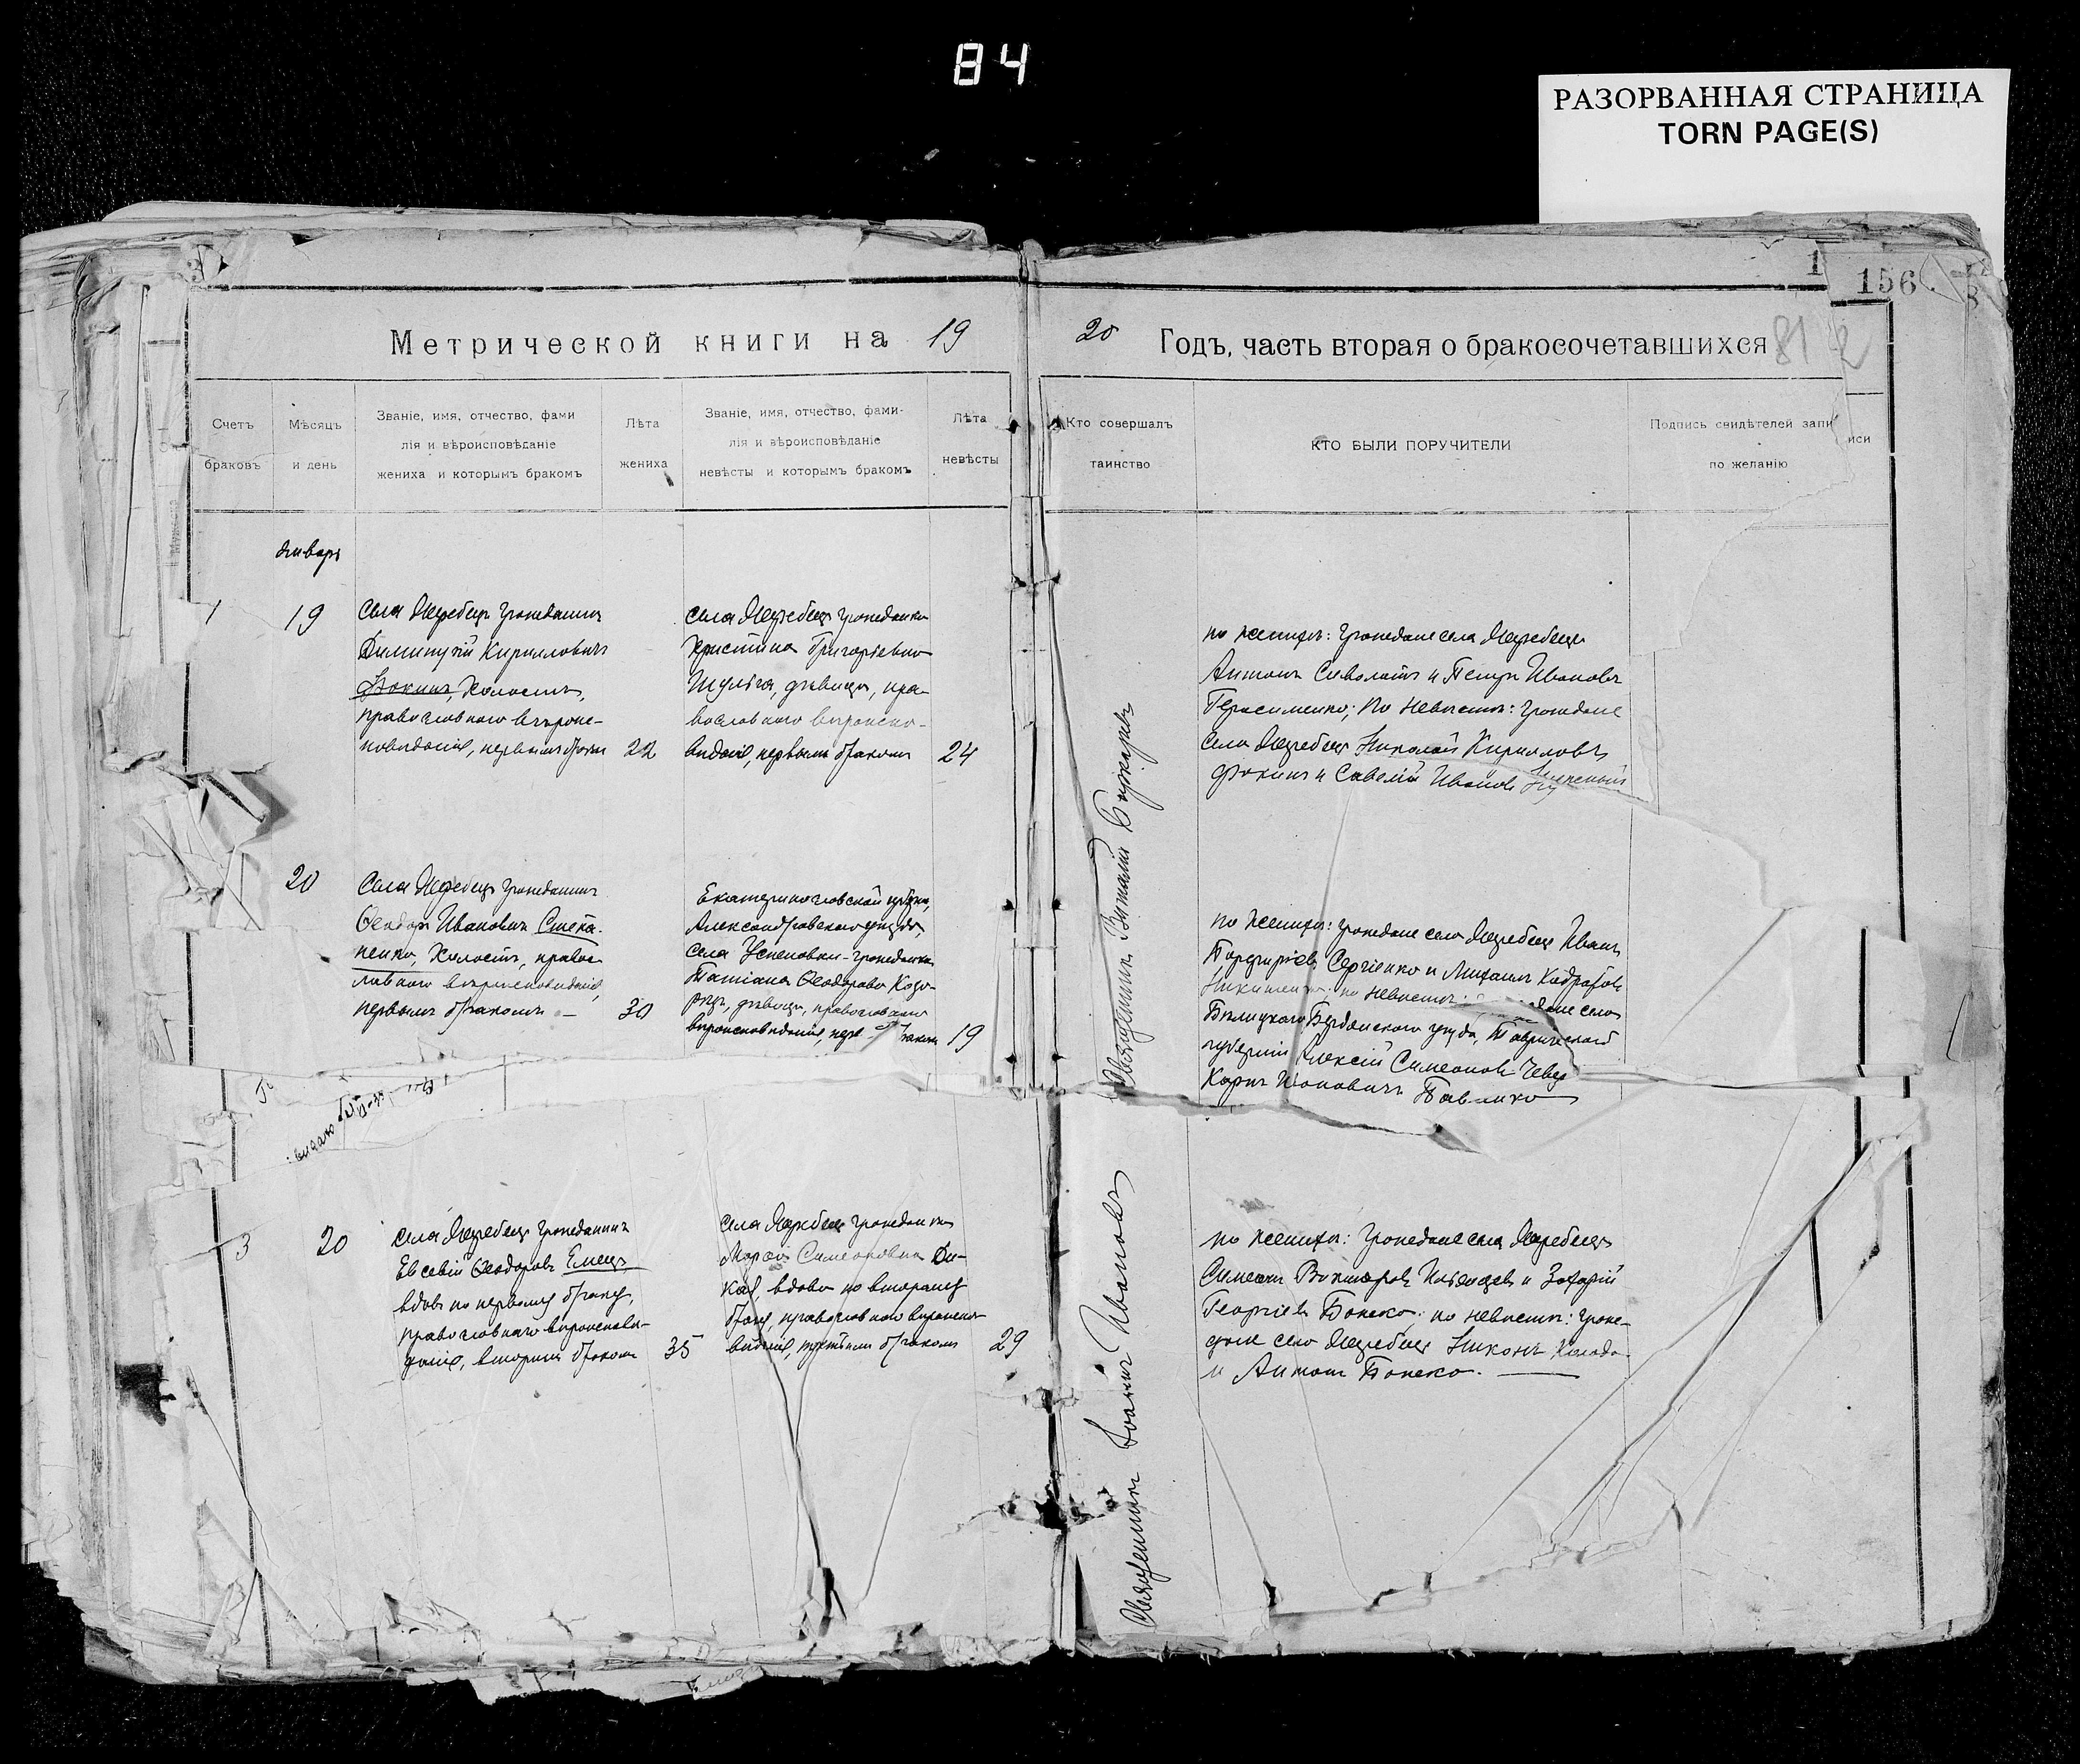 84
РАЗОРВАННАЯ СТРАНИЦА
TORN PAGE(S)
156
Метрической книги на 19
20 Годъ, часть вторая о бракосочетавшихся
81
Счетъ
браковъ
Мѣсяцъ
и день
Званіе, имя, отчество, фами
лія и вѣроисповѣданіе
жениха и которымъ бракомъ
Лѣта
жениха
Званіе, имя, отчество, фами-
лія и вѣроисповѣданіе
невѣсты и которымъ бракомъ
Лѣта
невѣсты
Кто совершалъ
таинство
КТО БЫЛИ ПОРУЧИТЕЛИ
Подпись свидѣтелей записи
по желанію
январь
1
19
села Жеребецъ гражданинъ
Димитрій Кирилловичъ
Фокинъ, холостъ,
православнаго вѣроис-
повѣданія, первымъ бракомъ
22
села Жеребецъ гражданка
Христина Григорьевна
Шульга, дѣвица, пра-
вославнаго вѣроиспо-
вѣданія, первымъ бракомъ
24
по женихѣ: граждане села Жеребецъ
Антонъ и Петръ Ивановъ
Герасименко; по невѣстѣ: граждане
села Жеребецъ Николай Кирилловъ
Фокинъ и Савелій Ивановъ
20
села Жеребецъ гражданинъ
Ѳеодоръ Ивановичъ Степа-
ненко, холостъ, правос-
лавнаго вѣроисповѣданія,
первымъ бракомъ –
30
Екатеринославской губерн,
Александровскаго уѣзда,
села Успеновки - гражданка
Татіана Ѳеодорова Козо-
рѣзъ, дѣвица, православнаго
вѣроисповѣданія, перв
19
по женихѣ: граждане села Жеребецъ Иванъ
Порфиріевъ Сергіенко и Михаилъ
Никитенко; по невѣстѣ: села
Бердянскаго уѣзда, Таврической
губерніи Алексій Симеоновъ
Павленко
Священникъ Виталій
3
20
села Жеребецъ гражданинъ
Евсевій Ѳеодоровъ Емецъ
вдовъ по первому браку,
православнаго вѣроисповѣ-
данія, вторымъ бракомъ
35
села Жеребецъ гражданка
Марѳа Симеоновна Ди-
кая, вдова по второму
браку, православнаго вѣроиспо-
вѣданія, третьимъ бракомъ
29
по женихѣ: граждане села Жеребецъ
Симеонъ Викторовъ и Захарій
Георгіевъ Бонеко; по невѣстѣ: граж-
дане села Жеребецъ Никонъ
и Антонъ Бонеко.
Священникъ Іоаннъ Ивановъ